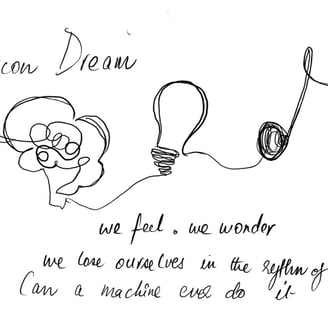 con Dream
we feel. we wonder
we lose ourselves in the rythm of
Can a machine ever do it